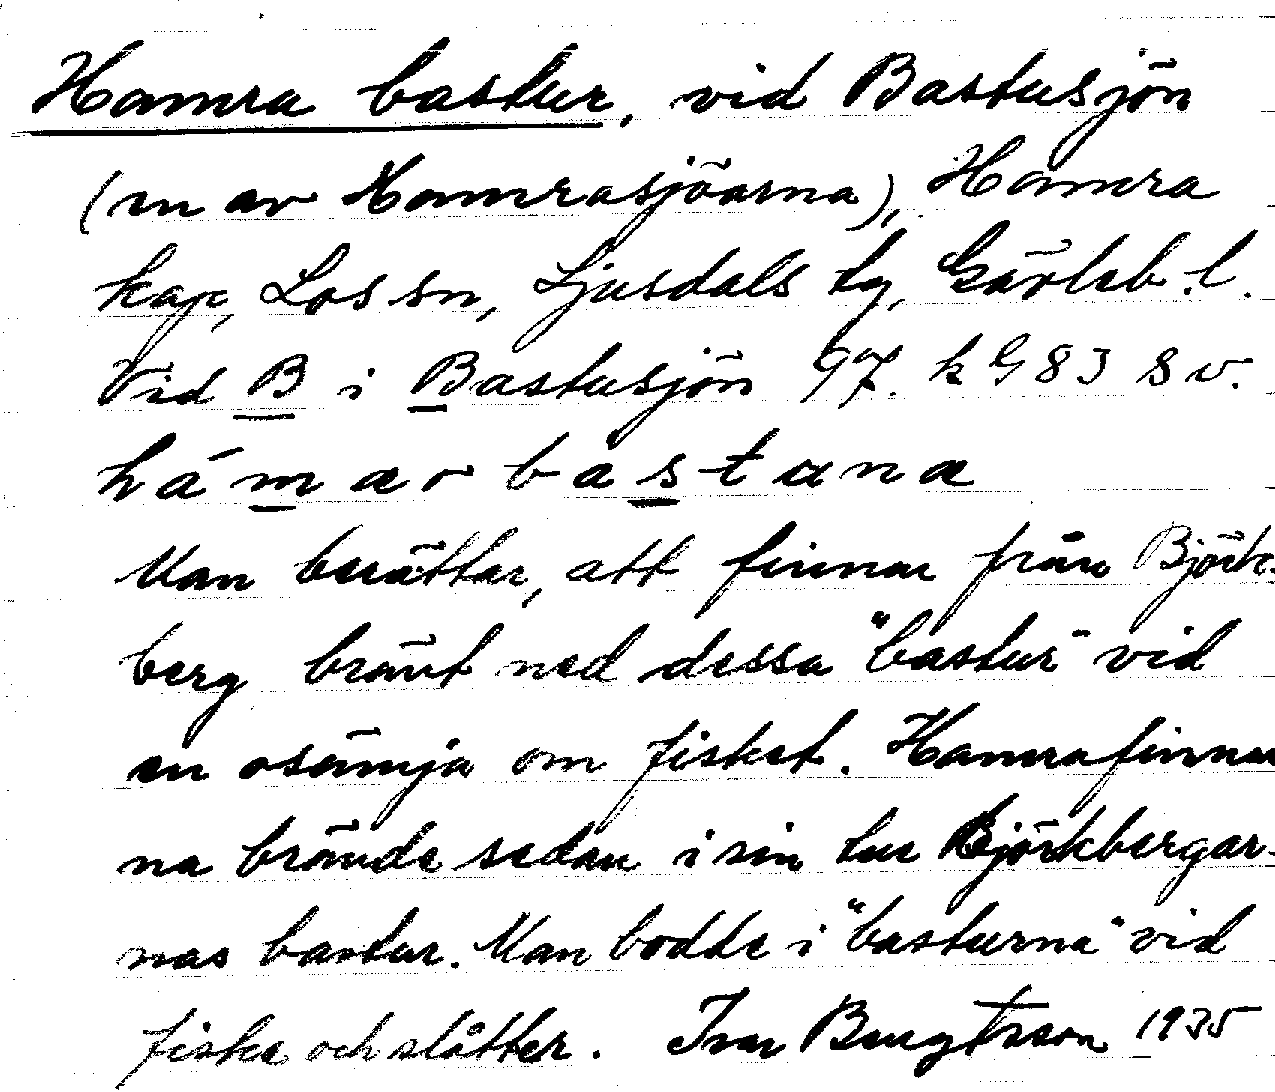 Hamra bastur, vid Bastusjön
(en av Hamrasjöarna), Hamra
kap, Los sn, Ljusdals tg, Gävleb. l.
Vid B i Bastusjön 97. k G 83 S v.
hámarbastuna
Man berättar, att finnar från Björk-
berg bränt ned dessa "bastur" vid
en osämja om fisket. Hamrafinnar
na brände sedan i sin tur Björkbergar-
nas bastur. Man bodde i "basturna" vid
fiske och slåtter. Ivar Bengtsson 1935